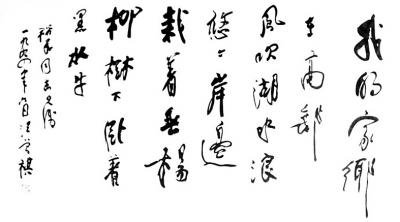 我的家乡
在高邮
风吹湖水浪
悠悠岸边
栽着垂杨
柳树下卧着
黑水牛